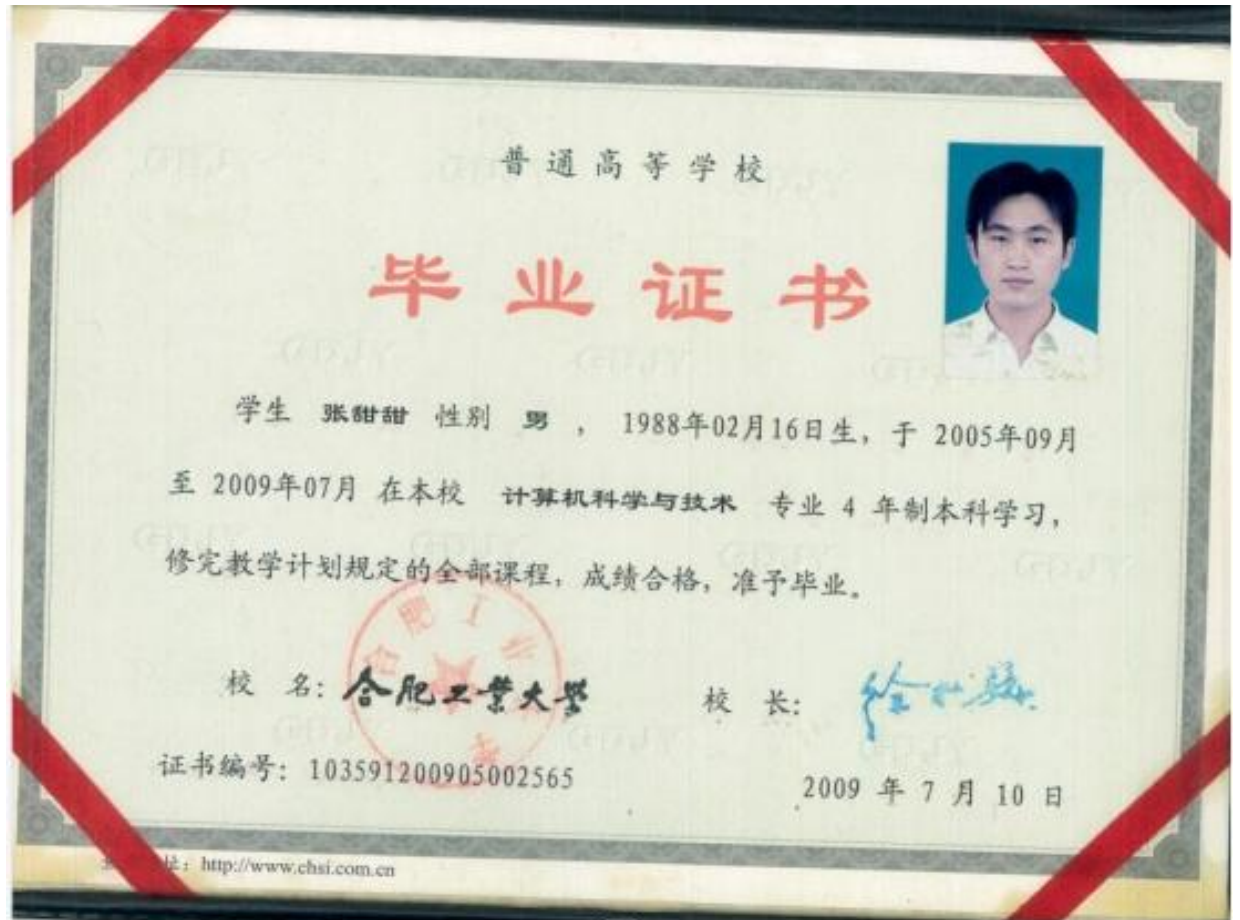 普通高等学校
毕业证书
学生 张甜甜 性别 男 ， 1988年02月16日生，于 2005年09月
至 2009年07月 在本校 计算机科学与技术 专业 4 年制本科学习，
修完教学计划规定的全部课程，成绩合格，准予毕业。
合肥工业
校 名：合肥工业大学 校 长：
证书编号：103591200905002565 2009 年 7 月 10 日
址：http://www.chsi.com.cn